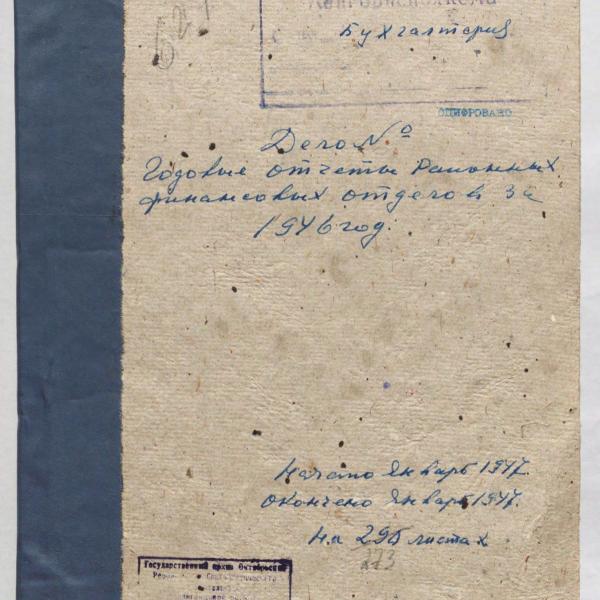 Ленгорисполкома
Бухгалтерия
ОЦИФРОВАНО
Дело №
Годовые отчеты Районных
финансовых отделов за
1946 год.
Начато Январь 1947.
Окончено Январь 1947.
На 295 листах
273
Государственный архив Октябрьской